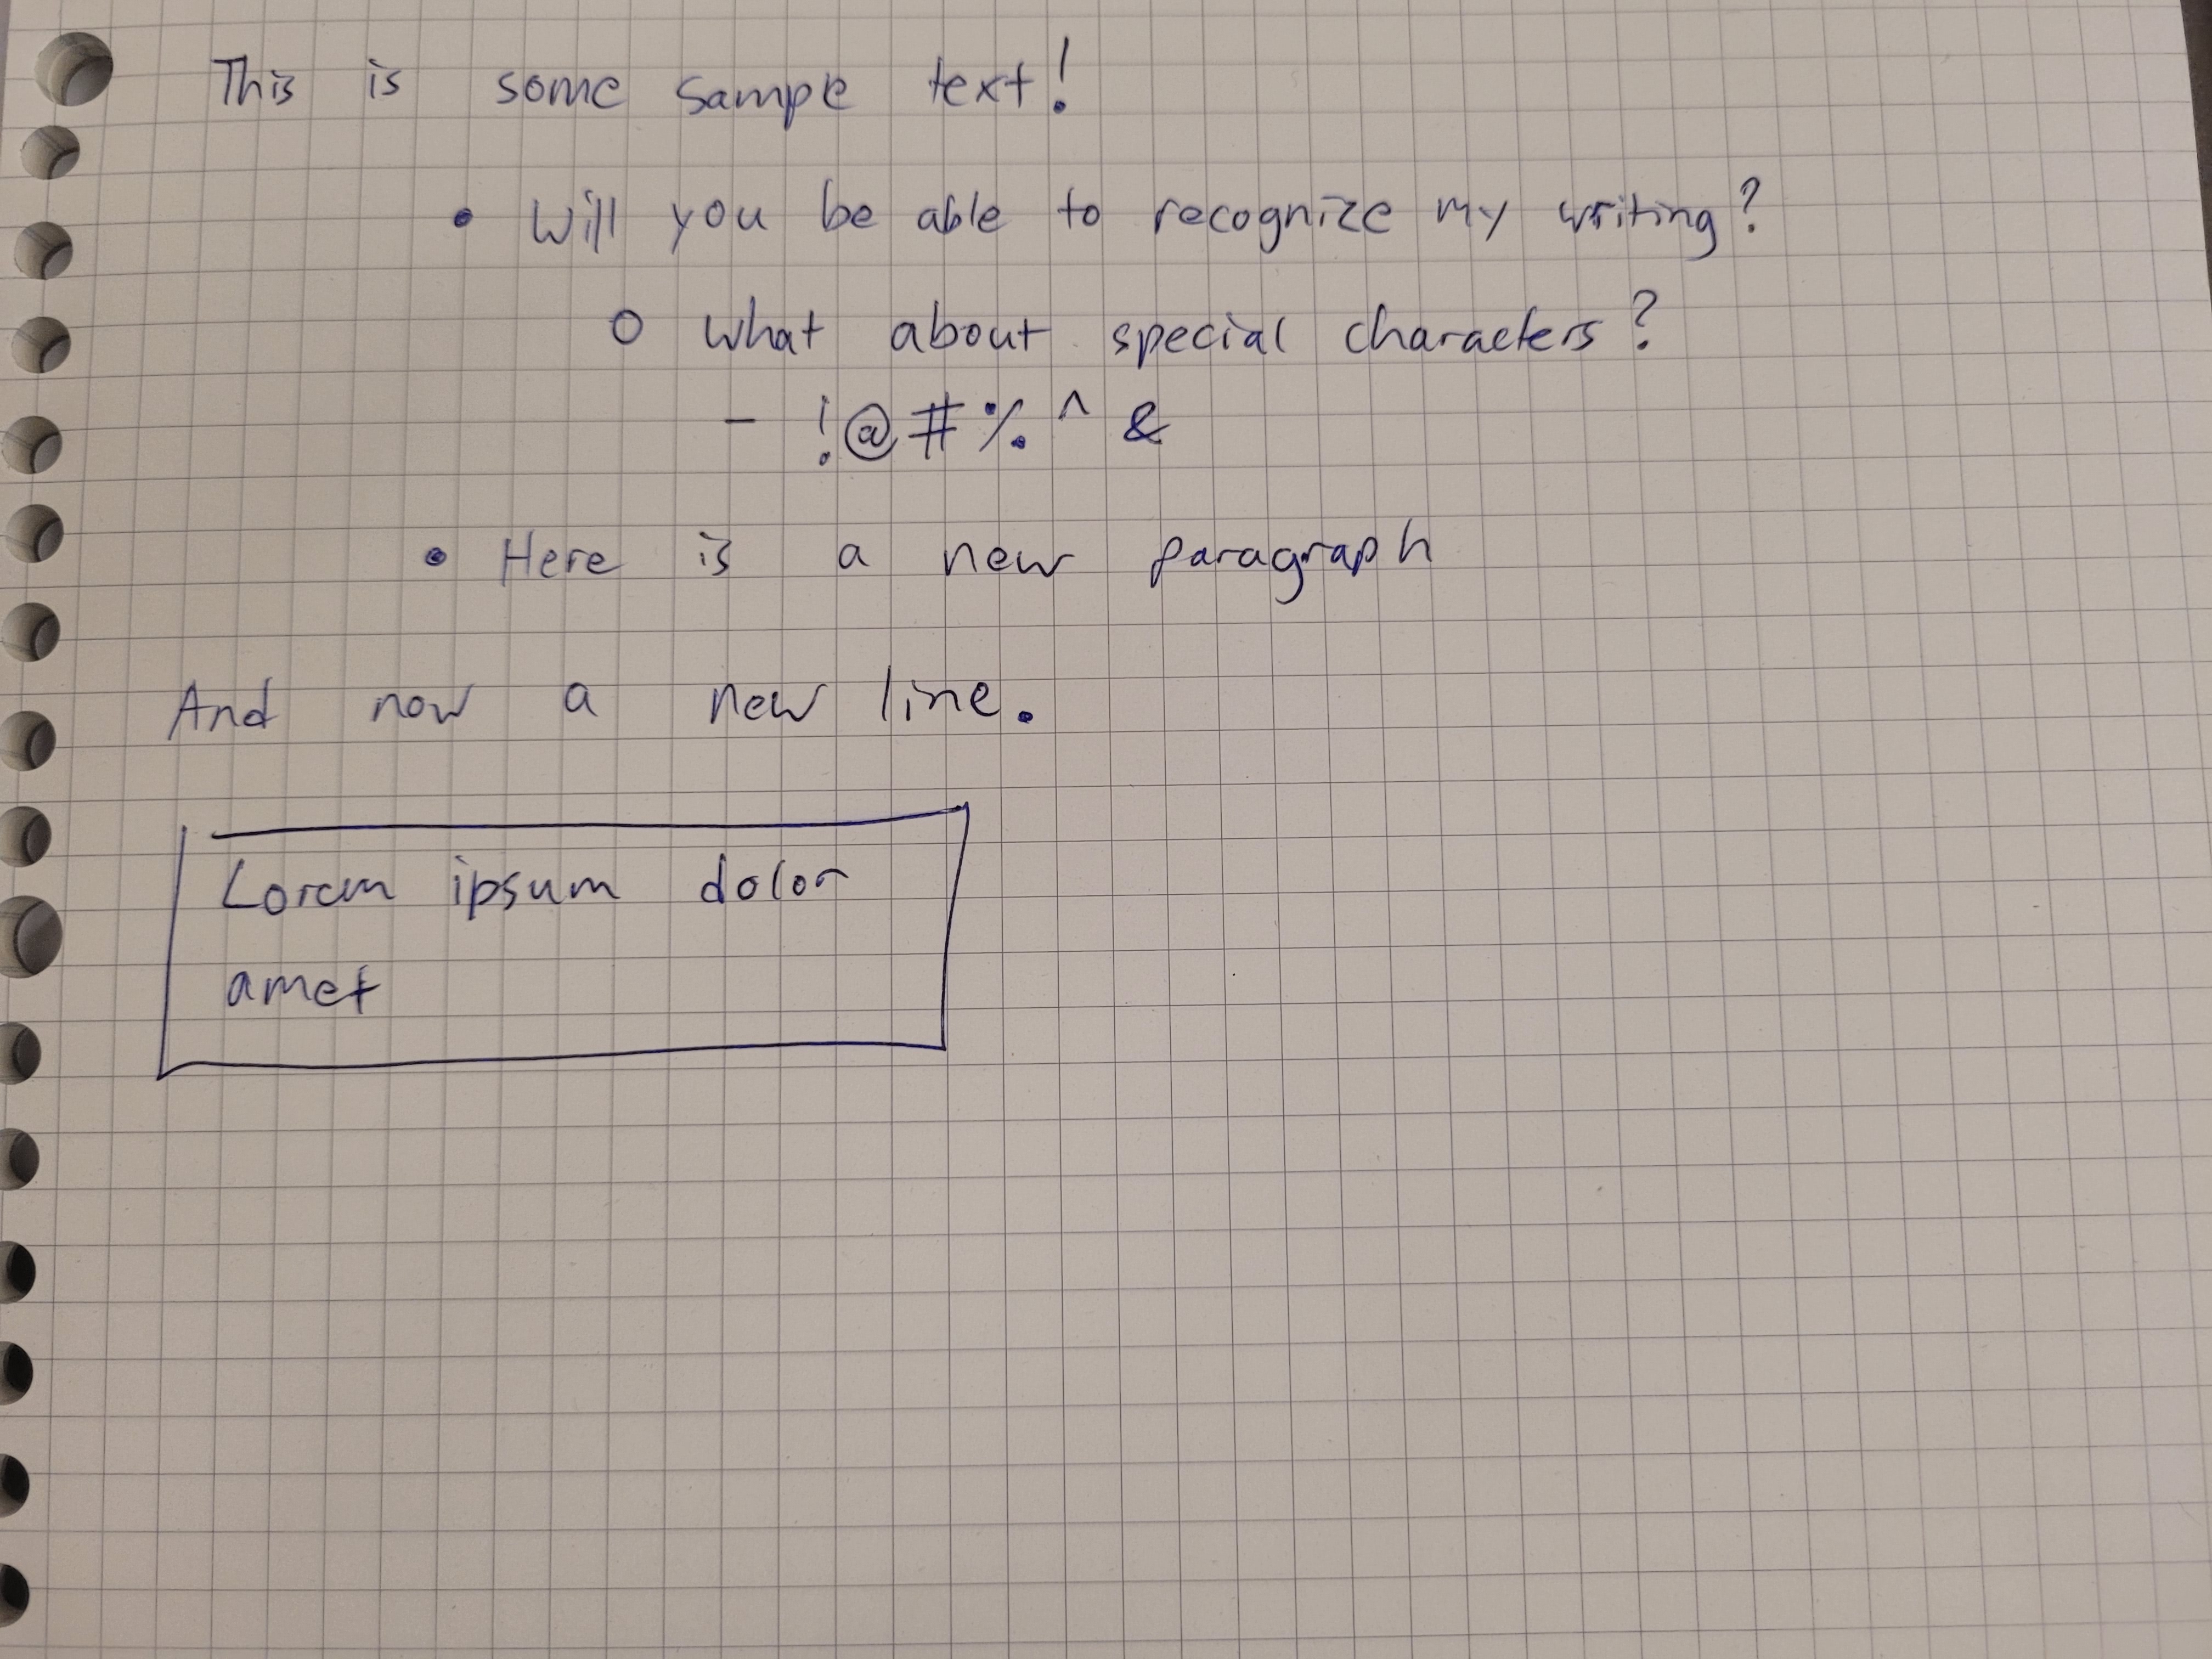 This is some sample text!
• Will you be able to recognize my writing?
o what about special characters?
- !@#%^&
• Here is a new paragraph
And now a new line.
Lorem ipsum dolor
amet